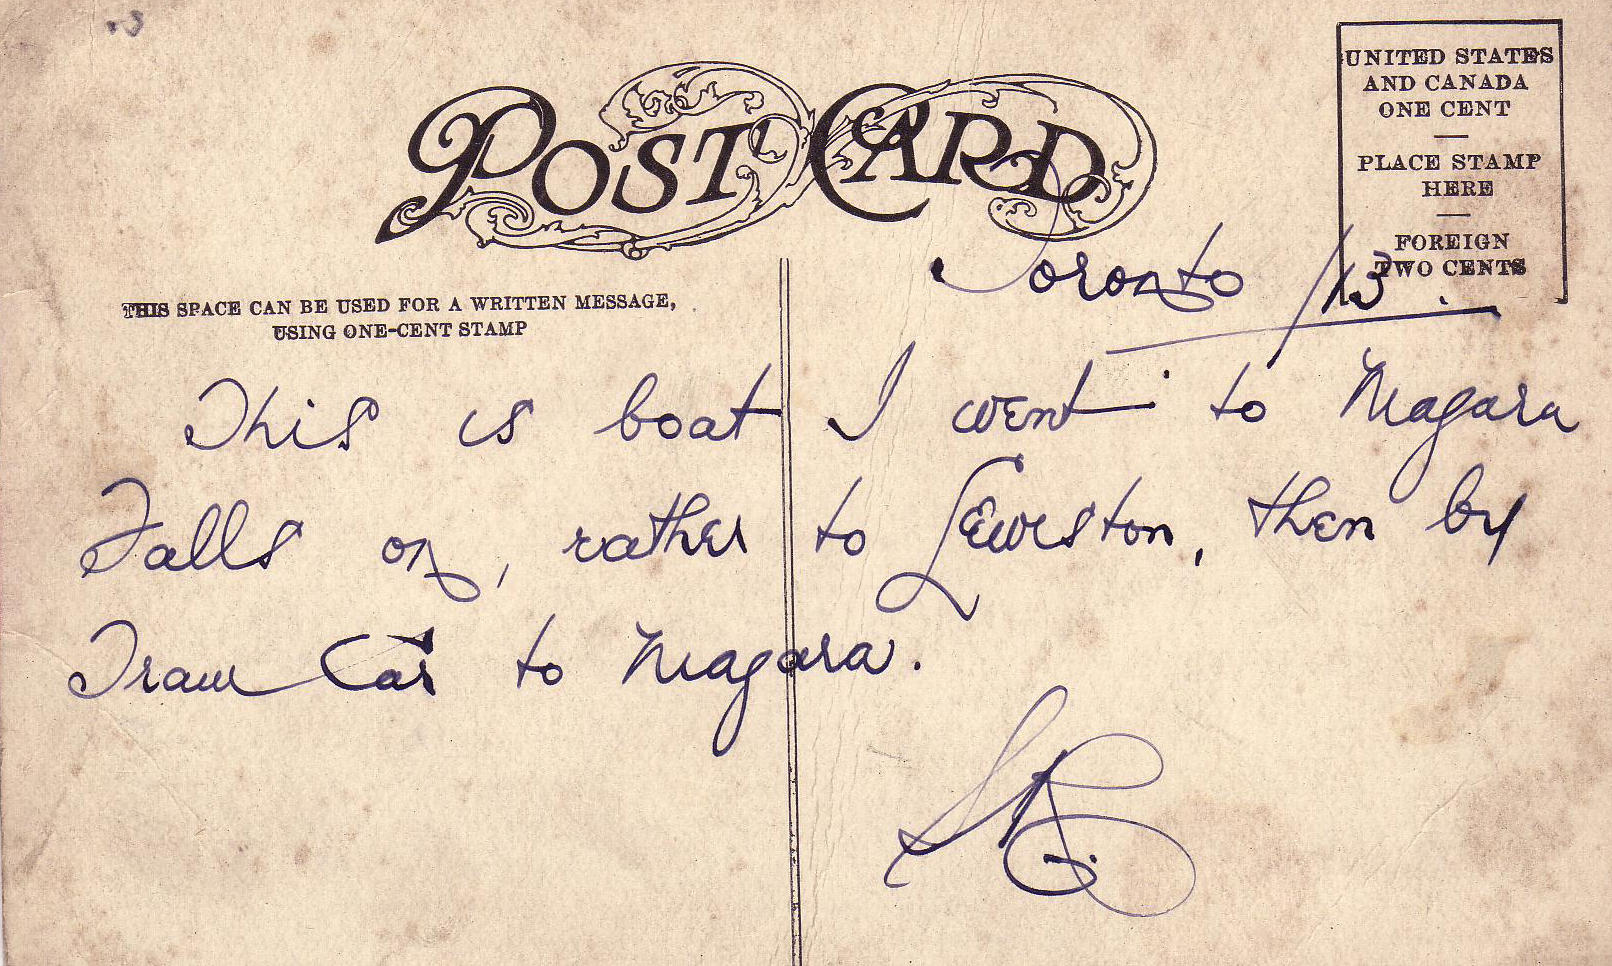 POST CARD
UNITED STATES
AND CANADA
ONE CENT
PLACE STAMP
HERE
FOREIGN
TWO CENTS
THIS SPACE CAN BE USED FOR A WRITTEN MESSAGE,
USING ONE-CENT STAMP
Toronto /13.
This is boat I went to Niagara
Falls on, rather to Lewiston, then by
Tram Car to Niagara.